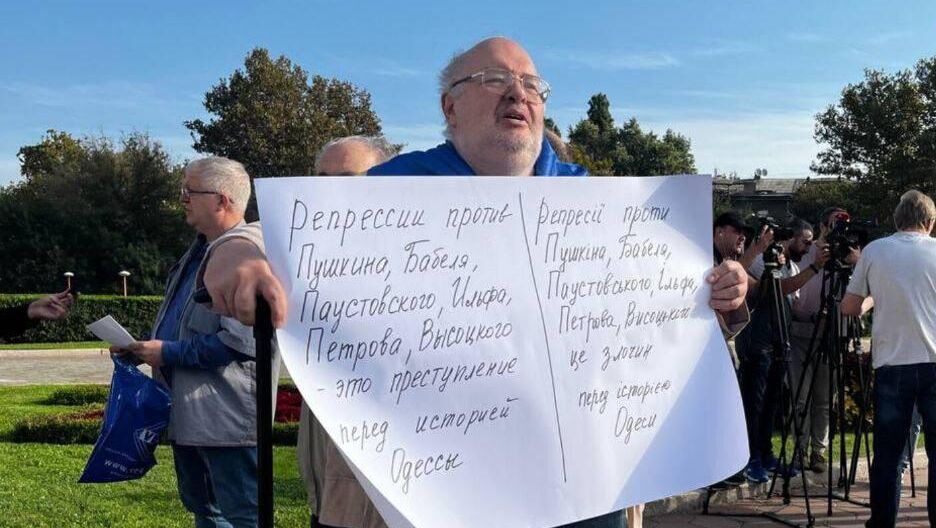 Репрессии против
Пушкина, Бабеля,
Паустовского, Ильфа,
Петрова, Высоцкого
- это преступление
перед историей
Одессы
Репресії проти
Пушкіна, Бабеля,
Паустовського, Ильфа,
Петрова, Висоцького
це злочин
перед історією
Одеси